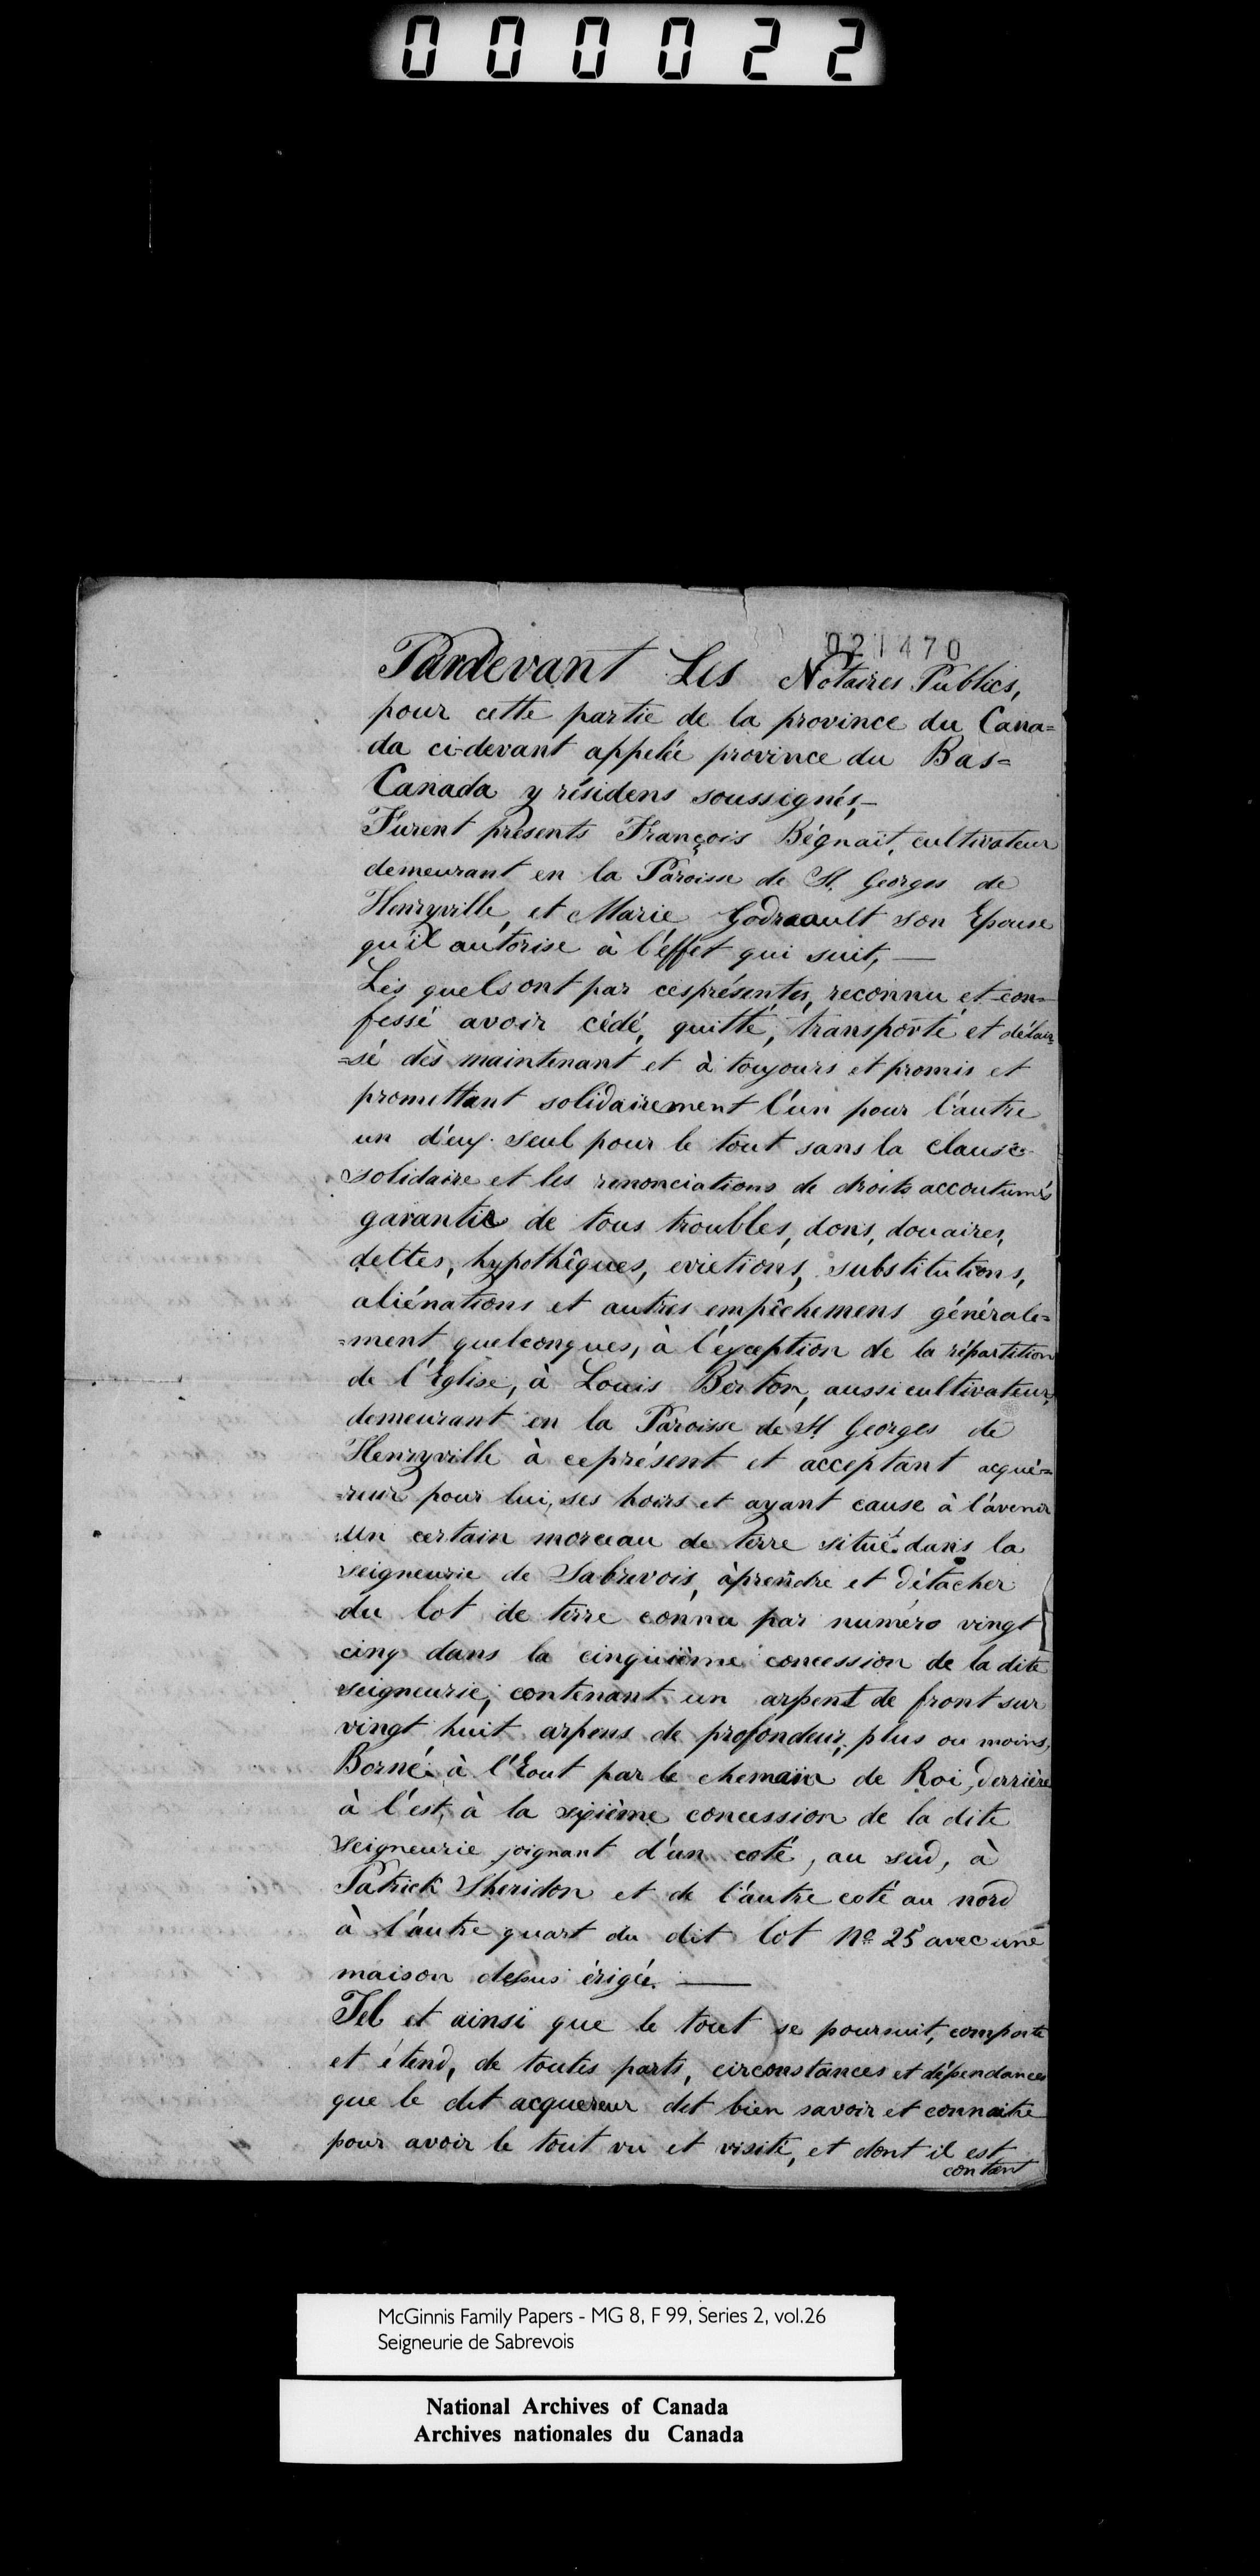 000022
021470
Pardevant Les Notaires Publics,
pour cette partie de la province du Cana=
da ci-devant appelée province du Bas=
Canada y résidens soussignés,—
Furent présents François Bégnait, cultivateur
demeurant en la Paroisse de St. Georges de
Henryville, et Marie Godreault son Epouse
qu'il autorise à l'effet qui suit, —
Les quels ont par ces présentes, reconnu et con=
fessé avoir cédé, quitté, transporté et délais
=sé dès maintenant et à toujours et promis et
promettant solidairement l'un pour l'autre
un d'eux seul pour le tout sans la clause
solidaire et les renonciations de droits accoutumés
garantie de tous troubles, dons, douaires,
dettes, hypothêques, evictions, substitutions,
aliénations et autres empêchemens générale=
=ment quelconques, à l'exception de la répartition
de l'Eglise, à Louis Berton, aussi cultivateur,
demeurant en la Paroisse de St Georges de
Henryville à ce présent et acceptant acqué=
=reur pour lui, ses hoirs et ayant cause à l'avenir
un certain morceau de terre situé dans la
seigneurie de Sabrevois, à prendre et détacher
du lot de terre connu par numéro vingt
cinq dans la cinquième concession de la dite
seigneurie, contenant un arpent de front sur
vingt huit arpens de profondeur, plus ou moins,
Borné à l'Eout par le chemain de Roi, derrière
à l'est, à la sixième concession de la dite
seigneurie joignant d'un coté, au sud, à
Patrick Sheridon et de l'autre coté au nord
à l'autre quart du dit lot No 25 avec une
maison dessus érigée. —
Tel et ainsi que le tout se poursuit, comporte
et étend, de toutes parts, circonstances et dépendances
que le dit acquereur dit bien savoir et connaitre
pour avoir le tout vu et visité, et dont il est
contant
McGinnis Family Papers - MG 8, F 99, Series 2, vol.26
Seigneurie de Sabrevois
National Archives of Canada
Archives nationales du Canada